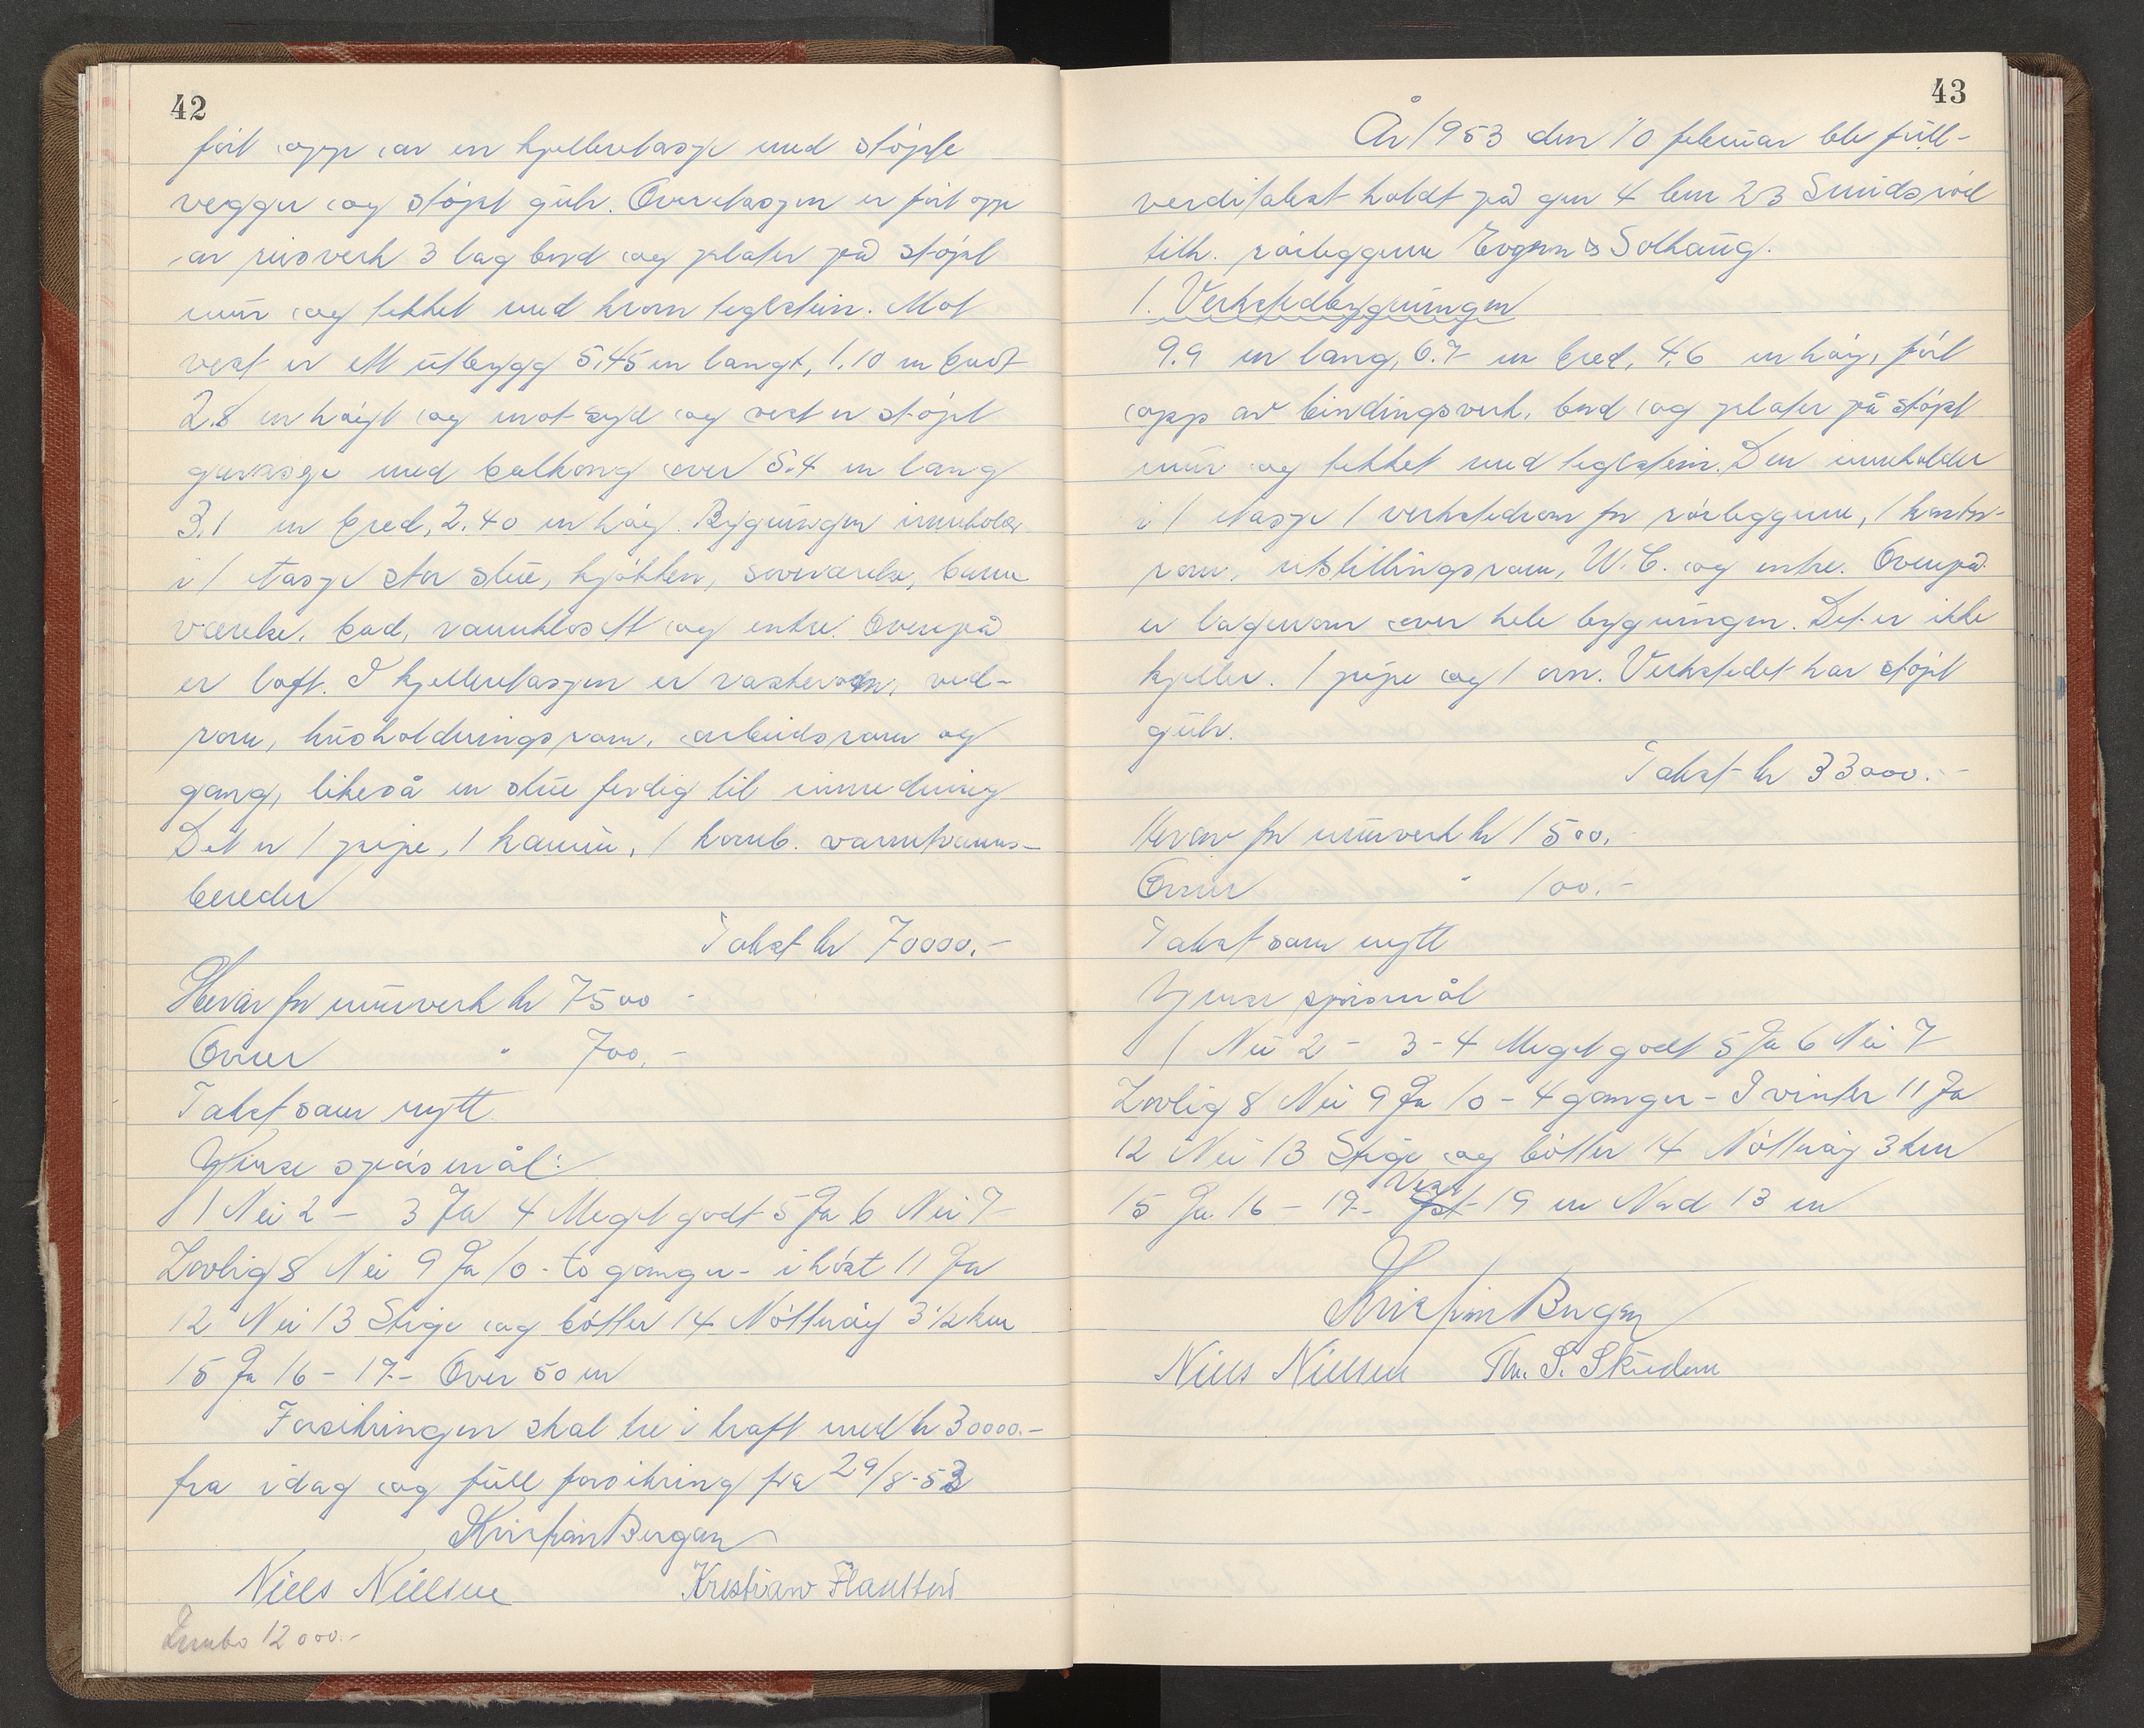 42
ført opp av en kjelleretasje med støpte
vegger og støpt gulv. Overetasjen er ført opp
av reisverk 3 lag bord og plater på støpt
mur og tekket med krom teglstein. Mot
vest er ett utbygg 5,45 m langt, 1.10 m bredt
2.8 m høyt og mot syd og vest er støpt
garasje med balkong over 5.4 m lang
3,1 m bred, 2.40 m høy. Bygningen inneholder
i 1 etasje stor stue, kjøkken, soveværelse, barne
værelse, bad, vannklosett og entre. Ovenpå
er loft. I kjelleretasjen er vaskerom, ved-
rom, husholdningsrom, arbeidsrom og
gang, likeså en stue ferdig til innredning
Det er 1 pipe, 1 kamin, 1 komb. varmtvanns-
bereder
Takst kr 70000.-
Herav for murverk kr 7500 -
Ovner " 700.-
Takst som nytt
Ymse spørsmål:
1 Nei 2 - 3 Ja 4 Meget godt 5 Ja 6 Nei 7
Lovlig 8 Nei 9 Ja 10 - to ganger - i høst 11 Ja
12 Nei 13 Stige og bøtter 14 Nøtterøy 3 1/2 km
15 Ja 16 - 17 - Over 50 m
Forsikringen skal tre i kraft med kr 30000.-
fra idag og full forsikring fra 29/8-53
Kristian Bergan
Niels Nielsen Kristian Flaatten
12000.-
43
År 1953 den 10 februar ble full-
verditakst holdt på gnr 4 bnr 23 Smidsrød
tilh. rørleggerne Evgen & Solhaug.
1. Verkstedbygningen
9.9 m lang, 6.7 m bred, 4,6 m høy, ført
opp av bindingsverk, bord og plater på støpt
mur og tekket med teglstein. Den inneholder
i 1 etasje 1 verkstedrom for rørleggerne, 1 kontor-
rom, utstillingsrom, W.C. og entre. Ovenpå
er lagerrom over hele bygningen. Det er ikke
kjeller. 1 pipe og 1 ovn. Verkstedet har støpt
gulv.
Takst kr 33000.-
Herav for murverk kr 1500.-
Ovner " 100.-
Takst som nytt
Ymse spørsmål
1 Nei 2 - 3 - 4 Meget godt 5 Ja 6 Nei 7
Lovlig 8 Nei 9 Ja 10 - 4 ganger - I vinter 11 Ja
12 Nei 13 Stige og bøtter 14 Nøtterøy 3 km
15 Ja 16 - 17 - Vest 19 m Nord 13 m
Kristian Bergan
Niels Nielsen Th. S. Skudem